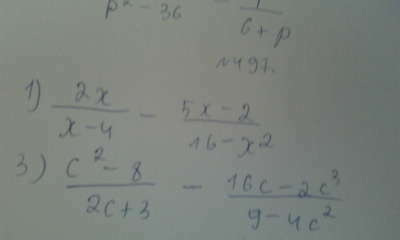 p² - 36 - 1/(6+p)
№497.
1) 2x/(x-4) - (5x-2)/(16-x²)
3) (c²-8)/(2c+3) - (16c-2c³)/(9-4c²)